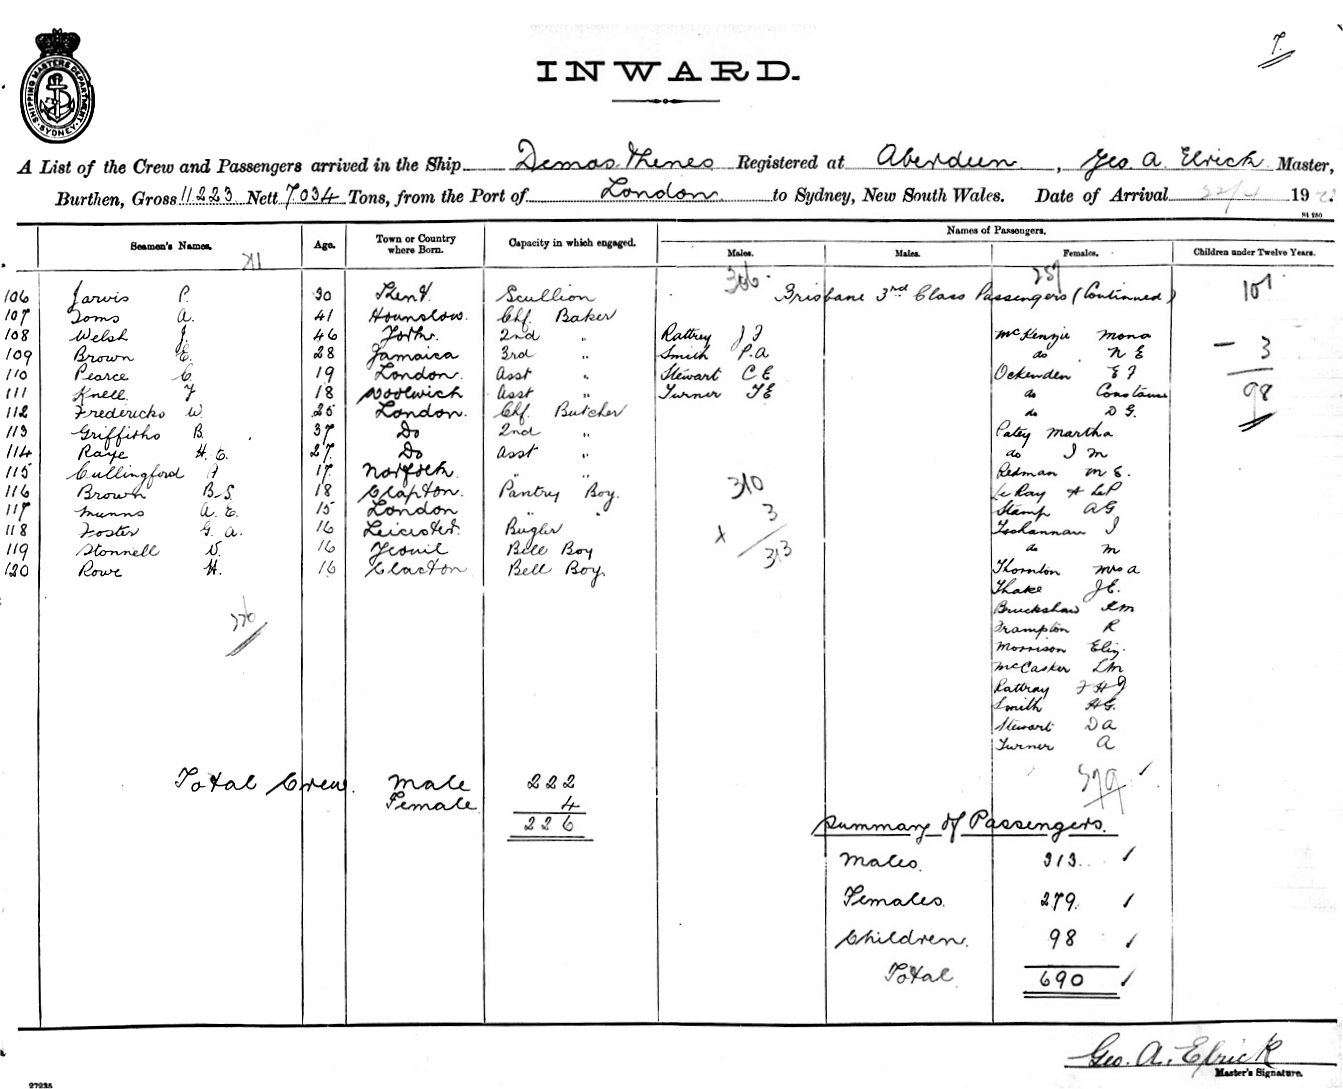 SHIPPING MASTERS DEPARTMENT SYDNEY
7.
INWARD.
A List of the Crew and Passengers arrived in the Ship Demosthenes Registered at Aberdeen, Geo A. Elrick Master,
Burthen, Gross 11223 Nett 7034 Tons, from the Port of London to Sydney, New South Wales. Date of Arrival 19
Seamen's Names. Age. Town or Country where Born. Capacity in which engaged. Names of Passengers.
Males. Males. Females. Children under Twelve Years.
306 257 101
106 Jarvis P. 30 Kent. Scullion Brisbane 3rd Class Passengers (Continued)
107 Toms A. 41 Hounslow. Chf. Baker
108 Welsh J. 46 York. 2nd " Rattrey J F McKenzie Mona
109 Brown E. 28 Jamaica 3rd " Smith P.A do N E – 3
110 Pearce C. 19 London. Asst " Stewart C E Ockenden E F
111 Knell F 18 Woolwich Asst " Turner T E do Constance 98
112 Fredericks W. 25 London. Chf. Butcher do D G.
113 Griffiths B. 37 Do 2nd " Patey Martha
114 Raye H. E. 27. Do Asst " do I M
115 Cullingford A 17. Norfolk. " " Redman M E.
116 Brown B.S. 18 Clapton. Pantry Boy. 310 Le Ray A Le P
117 Munns A. E. 15 London " " 3 Stamp A G
118 Foster G. A. 16 Leicester. Bugler x Tschannan I
119 Stonnell V. 16 Yeovil Bell Boy 313 do M
120 Rowe H. 16 Clacton Bell Boy. Thornton Mrs A
Thake J E.
Bruckshaw
Frampton R
226
Morrison Eliz.
McCasker L M
Rattray F H J
Smith A G.
Stewart D A
Turner A
279
Total Crew. Male 222
Female 4
226
Summary of Passengers.
Males. 313
Females. 279
Children. 98
Total 690
Geo. A. Elrick
Master's Signature.
27235